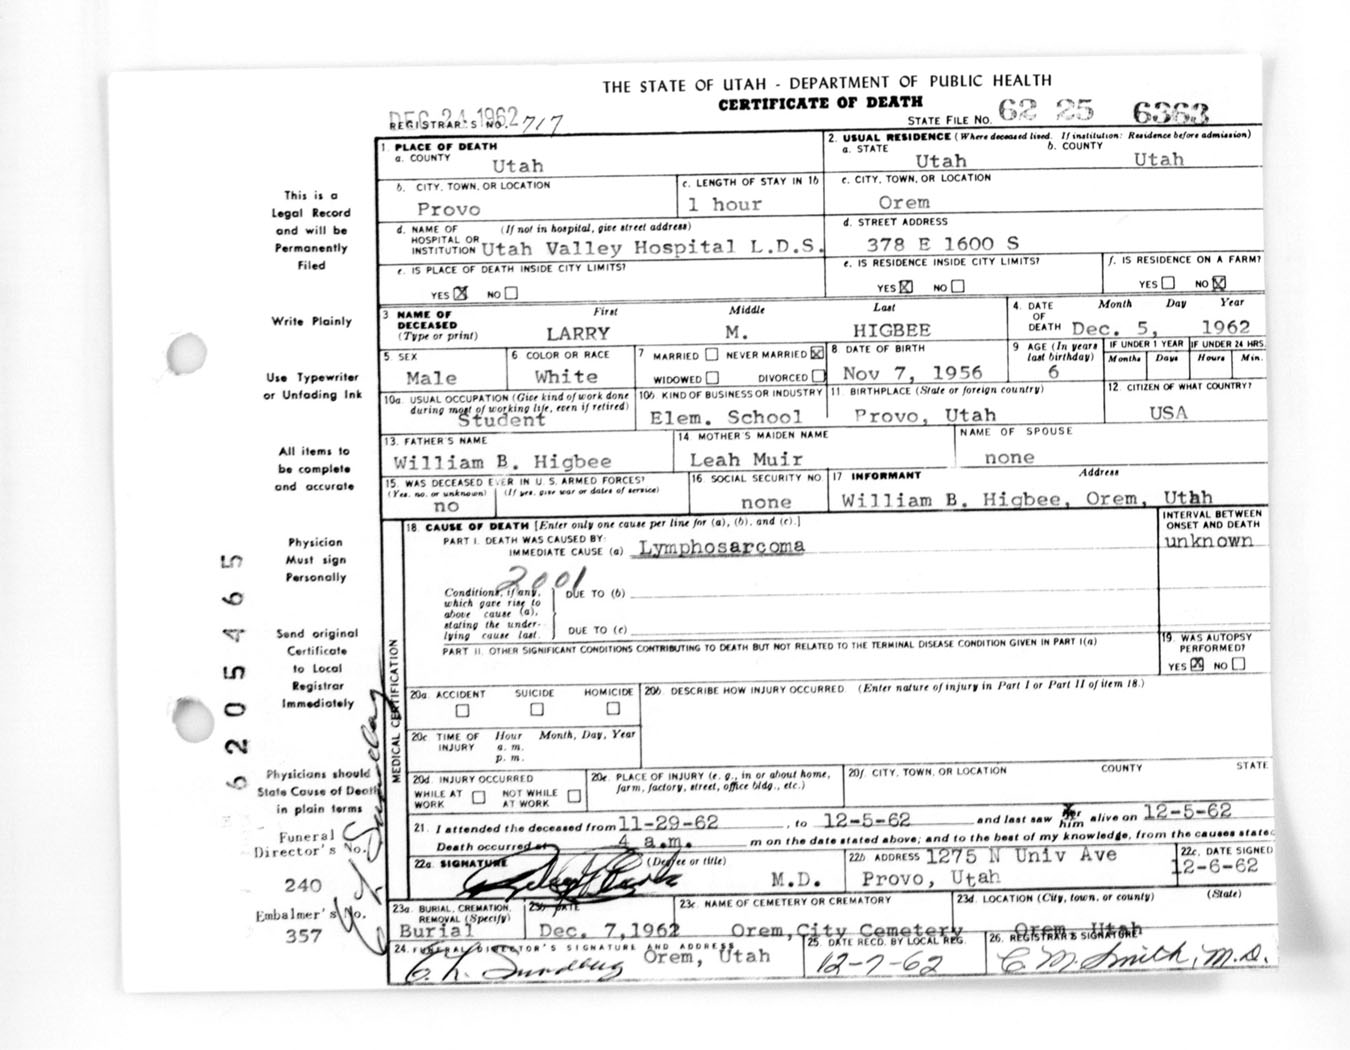 THE STATE OF UTAH - DEPARTMENT OF PUBLIC HEALTH
CERTIFICATE OF DEATH
DEC 24 1962
REGISTRAR'S NO. 717
STATE FILE NO. 62 25 6363
1. PLACE OF DEATH
a. COUNTY Utah
2. USUAL RESIDENCE (Where deceased lived. If institution: Residence before admission)
a. STATE Utah b. COUNTY Utah
b. CITY, TOWN, OR LOCATION Provo
c. LENGTH OF STAY IN 1b 1 hour
c. CITY, TOWN, OR LOCATION Orem
d. NAME OF HOSPITAL OR INSTITUTION (If not in hospital, give street address) Utah Valley Hospital L.D.S.
d. STREET ADDRESS 378 E 1600 S
e. IS PLACE OF DEATH INSIDE CITY LIMITS?
YES X NO
e. IS RESIDENCE INSIDE CITY LIMITS?
YES X NO
f. IS RESIDENCE ON A FARM?
YES NO X
3 NAME OF DECEASED (Type or print)
First Middle Last
LARRY M. HIGBEE
4. DATE OF DEATH Month Day Year
Dec. 5, 1962
5 SEX Male
6 COLOR OR RACE White
7 MARRIED NEVER MARRIED X
WIDOWED DIVORCED
8 DATE OF BIRTH Nov 7, 1956
9 AGE (In years last birthday) 6
IF UNDER 1 YEAR Months Days
IF UNDER 24 HRS. Hours Min.
10a. USUAL OCCUPATION (Give kind of work done during most of working life, even if retired) Student
10b KIND OF BUSINESS OR INDUSTRY Elem. School
11 BIRTHPLACE (State or foreign country) Provo, Utah
12 CITIZEN OF WHAT COUNTRY? USA
13. FATHER'S NAME William B. Higbee
14 MOTHER'S MAIDEN NAME Leah Muir
NAME OF SPOUSE none
15. WAS DECEASED EVER IN U.S. ARMED FORCES?
(Yes, no, or unknown) (If yes, give war or dates of service)
no
16 SOCIAL SECURITY NO. none
17 INFORMANT Address
William B. Higbee, Orem, Utah
MEDICAL CERTIFICATION
18. CAUSE OF DEATH [Enter only one cause per line for (a), (b), and (c).]
PART I. DEATH WAS CAUSED BY:
IMMEDIATE CAUSE (a) Lymphosarcoma
INTERVAL BETWEEN ONSET AND DEATH
unknown
2001
Conditions, if any, which gave rise to above cause (a), stating the underlying cause last.
DUE TO (b)
DUE TO (c)
PART II. OTHER SIGNIFICANT CONDITIONS CONTRIBUTING TO DEATH BUT NOT RELATED TO THE TERMINAL DISEASE CONDITION GIVEN IN PART I(a)
19. WAS AUTOPSY PERFORMED?
YES X NO
20a. ACCIDENT SUICIDE HOMICIDE
20b. DESCRIBE HOW INJURY OCCURRED (Enter nature of injury in Part I or Part II of item 18.)
20c. TIME OF INJURY Hour Month, Day, Year
a. m.
p. m.
20d. INJURY OCCURRED
WHILE AT WORK NOT WHILE AT WORK
20e. PLACE OF INJURY (e. g., in or about home, farm, factory, street, office bldg., etc.)
20f. CITY, TOWN, OR LOCATION COUNTY STATE
21. I attended the deceased from 11-29-62, to 12-5-62 and last saw her him alive on 12-5-62
Death occurred at 4 a.m. m on the date stated above; and to the best of my knowledge, from the causes stated
22a. SIGNATURE (Degree or title) M.D.
22b ADDRESS 1275 N Univ Ave
Provo, Utah
22c. DATE SIGNED 12-6-62
23a. BURIAL, CREMATION, REMOVAL (Specify) Burial
23b DATE Dec. 7, 1962
23c. NAME OF CEMETERY OR CREMATORY Orem, City Cemetery
23d. LOCATION (City, town, or county) (State) Orem, Utah
24. FUNERAL DIRECTOR'S SIGNATURE AND ADDRESS Orem, Utah
25. DATE RECD. BY LOCAL REG. 12-7-62
26. REGISTRAR'S SIGNATURE C. M. Smith, M.D.
This is a
Legal Record
and will be
Permanently
Filed
Write Plainly
Use Typewriter
or Unfading Ink
All items to
be complete
and accurate
Physician
Must sign
Personally
Send original
Certificate
to Local
Registrar
Immediately
Physicians should
State Cause of Death
in plain terms
Funeral
Director's No.
240
Embalmer's No.
357
6205465